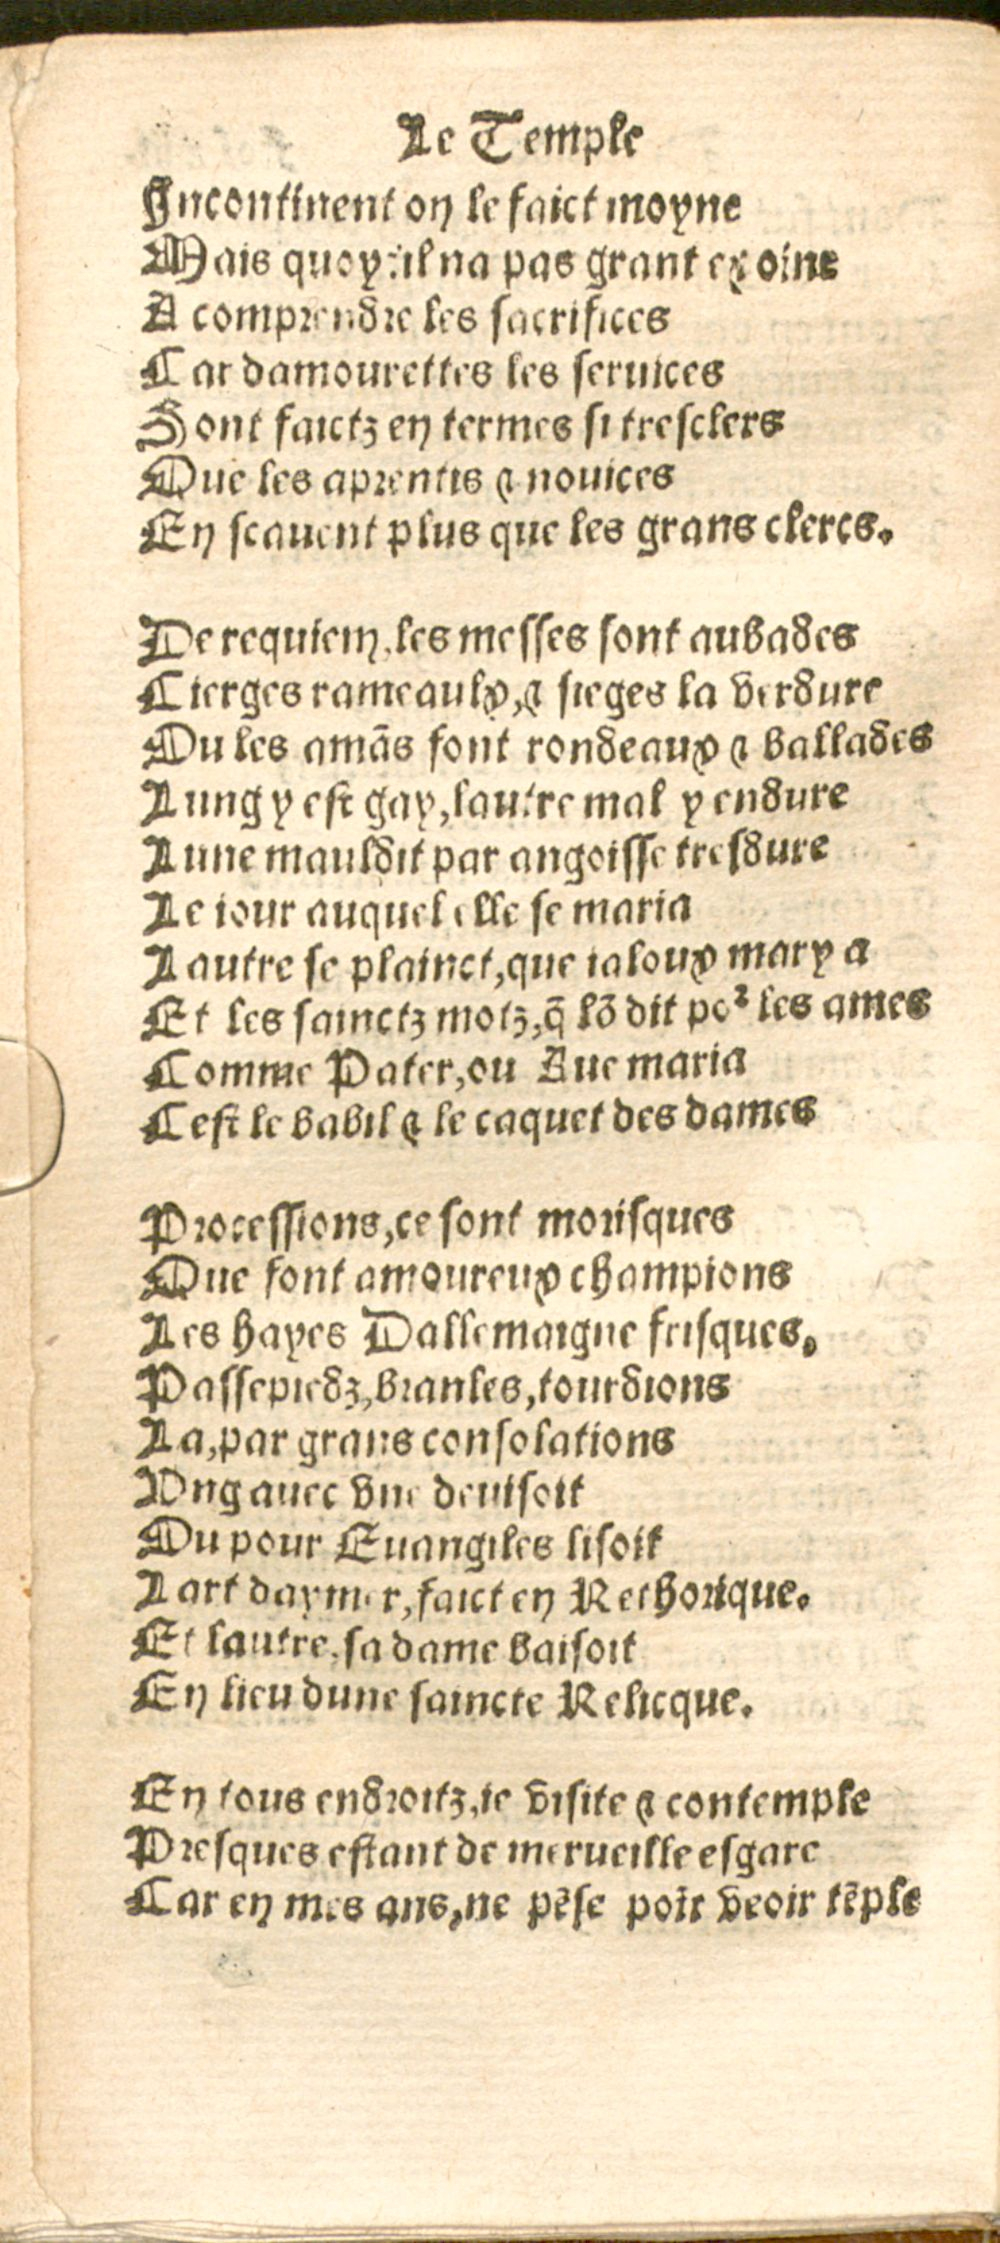 Le Temple
Incontinent on le faict moyne
Mais quoy: il na pas grant exoine
A comprendre les sacrifices
Car damourettes les seruices
Sont faictz en termes si tresclers
Que les aprentis ⁊ nouices
En scauent plus que les grans clercs.

De requiem, les messes sont aubades
Cierges rameaulx, ⁊ sieges la verdure
Ou les amās font rondeaux ⁊ ballades
Lung y est gay, lautre mal y endure
Lune mauldit par angoisse tresdure
Le iour auquel elle se maria
Lautre se plainct, que ialoux mary a
Et les sainctz motz, q̄ lō dit poᷣ les ames
Comme Pater, ou Aue maria
Cest le babil ⁊ le caquet des dames

Processions, ce sont morisques
Que font amoureux champions
Les hayes Dallemaigne frisques.
Passepiedz, branles, tourdions
La, par grans consolations
Vng auec vne deuisoit
Ou pour Euangiles lisoit
Lart daymer, faict en Rethorique.
Et lautre, sa dame baisoit
En lieu dune saincte Relicque.

En tous endroitz, ie visite ⁊ contemple
Presques estant de merueille esgare
Car en mes ans, ne pēse poīt veoir tēple